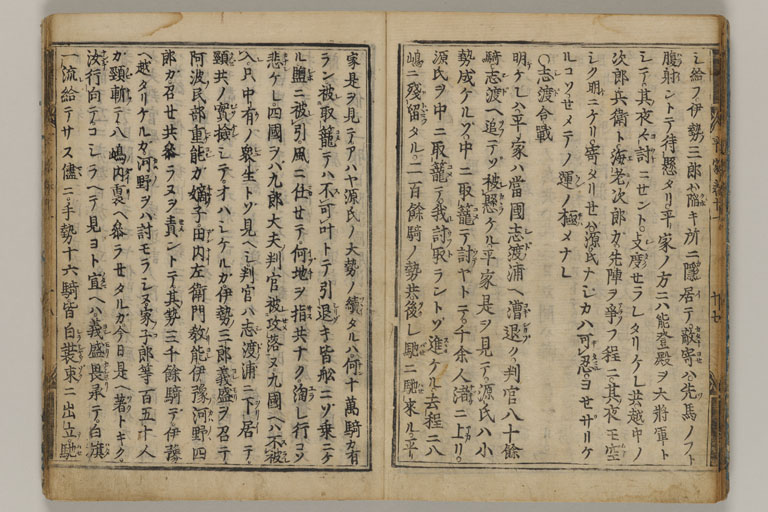 シ給フ伊勢三郎ハ陥キ所ニ隠居テ敵寄ハ先馬ノフト
腹射ントテ待懸タリ平家ノ方ニハ能登殿ヲ大将軍ト
シテ其夜夜討ニセントソ支度セラレタリケレ共越中ノ
次郎兵衛ト海老次郎カ先陣ヲ爭フ程ニ其夜モ空
シク明ニケリ寄タリセハ源氏ナシカハ可忍ヨセサリケ
ルコソセメテノ運ノ極メナレ
○志渡合戰
明ケレハ平家ハ當國志渡浦ヘ漕退ク判官八十餘
騎志渡ヘ追テソ被懸ケル平家是ヲ見テ源氏ハ小
勢成ケルソ中ニ取籠テ討ヤトテ千余人渚ニ上リ
源氏ヲ中ニ取籠テ我討取ラントソ進ミケル去程ニ八
嶋ニ殘留タル二百餘騎ノ勢共後レ馳ニ馳來ル平
家是ヲ見テアハヤ源氏ノ大勢ノ續タルハ何十萬騎カ有
ラン被取籠テハ不可叶トテ引退キ皆舩ニソ乗ニケ
ル鹽ニ被引風ニ仕セテ何地ヲ指共ナク淘レ行コソ
悲ケレ四國ヲハ九郎大夫判官被攻落ヌ九國ヘハ不被
入只中有ノ衆生トソ見ヘシ判官ハ志渡浦ニ下居テ
頸共ノ實檢シテオハシケルカ伊勢三郎義盛ヲ召テ
阿波民部重能カ嫡子田内左衛門敎能伊豫河野四
郎カ召共參ラヌヲ責ントテ其勢三千餘騎テ伊豫
ヘ越タリケルカ河野ヲハ討モラシヌ家子郎等百五十人
カ頸斬テ八嶋内裏ヘ參ラセタルカ今日是ヘ著トキク
汝行向テコシラヘテ見ヨト宜ヘハ義盛畏承テ白旗
一流給テサス儘ニ手勢十六騎皆白裝束ニ出立馳